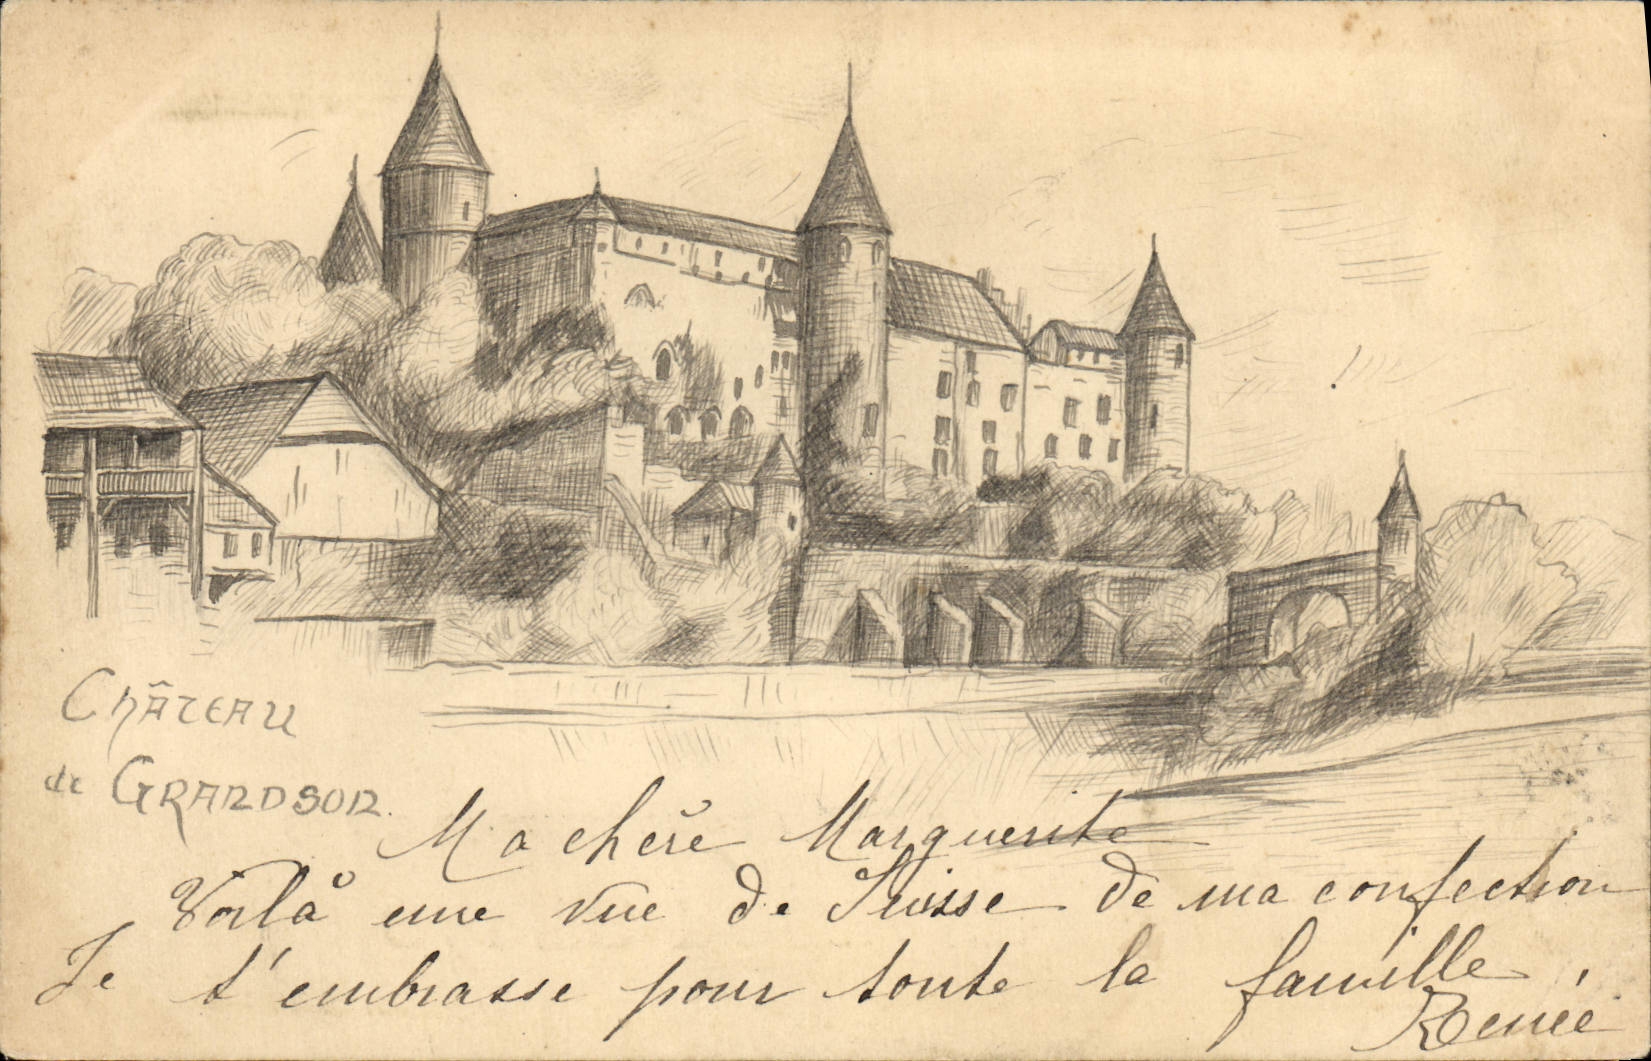 Château
de Grandson.
Ma chère Marguerite
Voilà une vue de Suisse de ma confection
Je t'embrasse pour toute la famille,
Renée